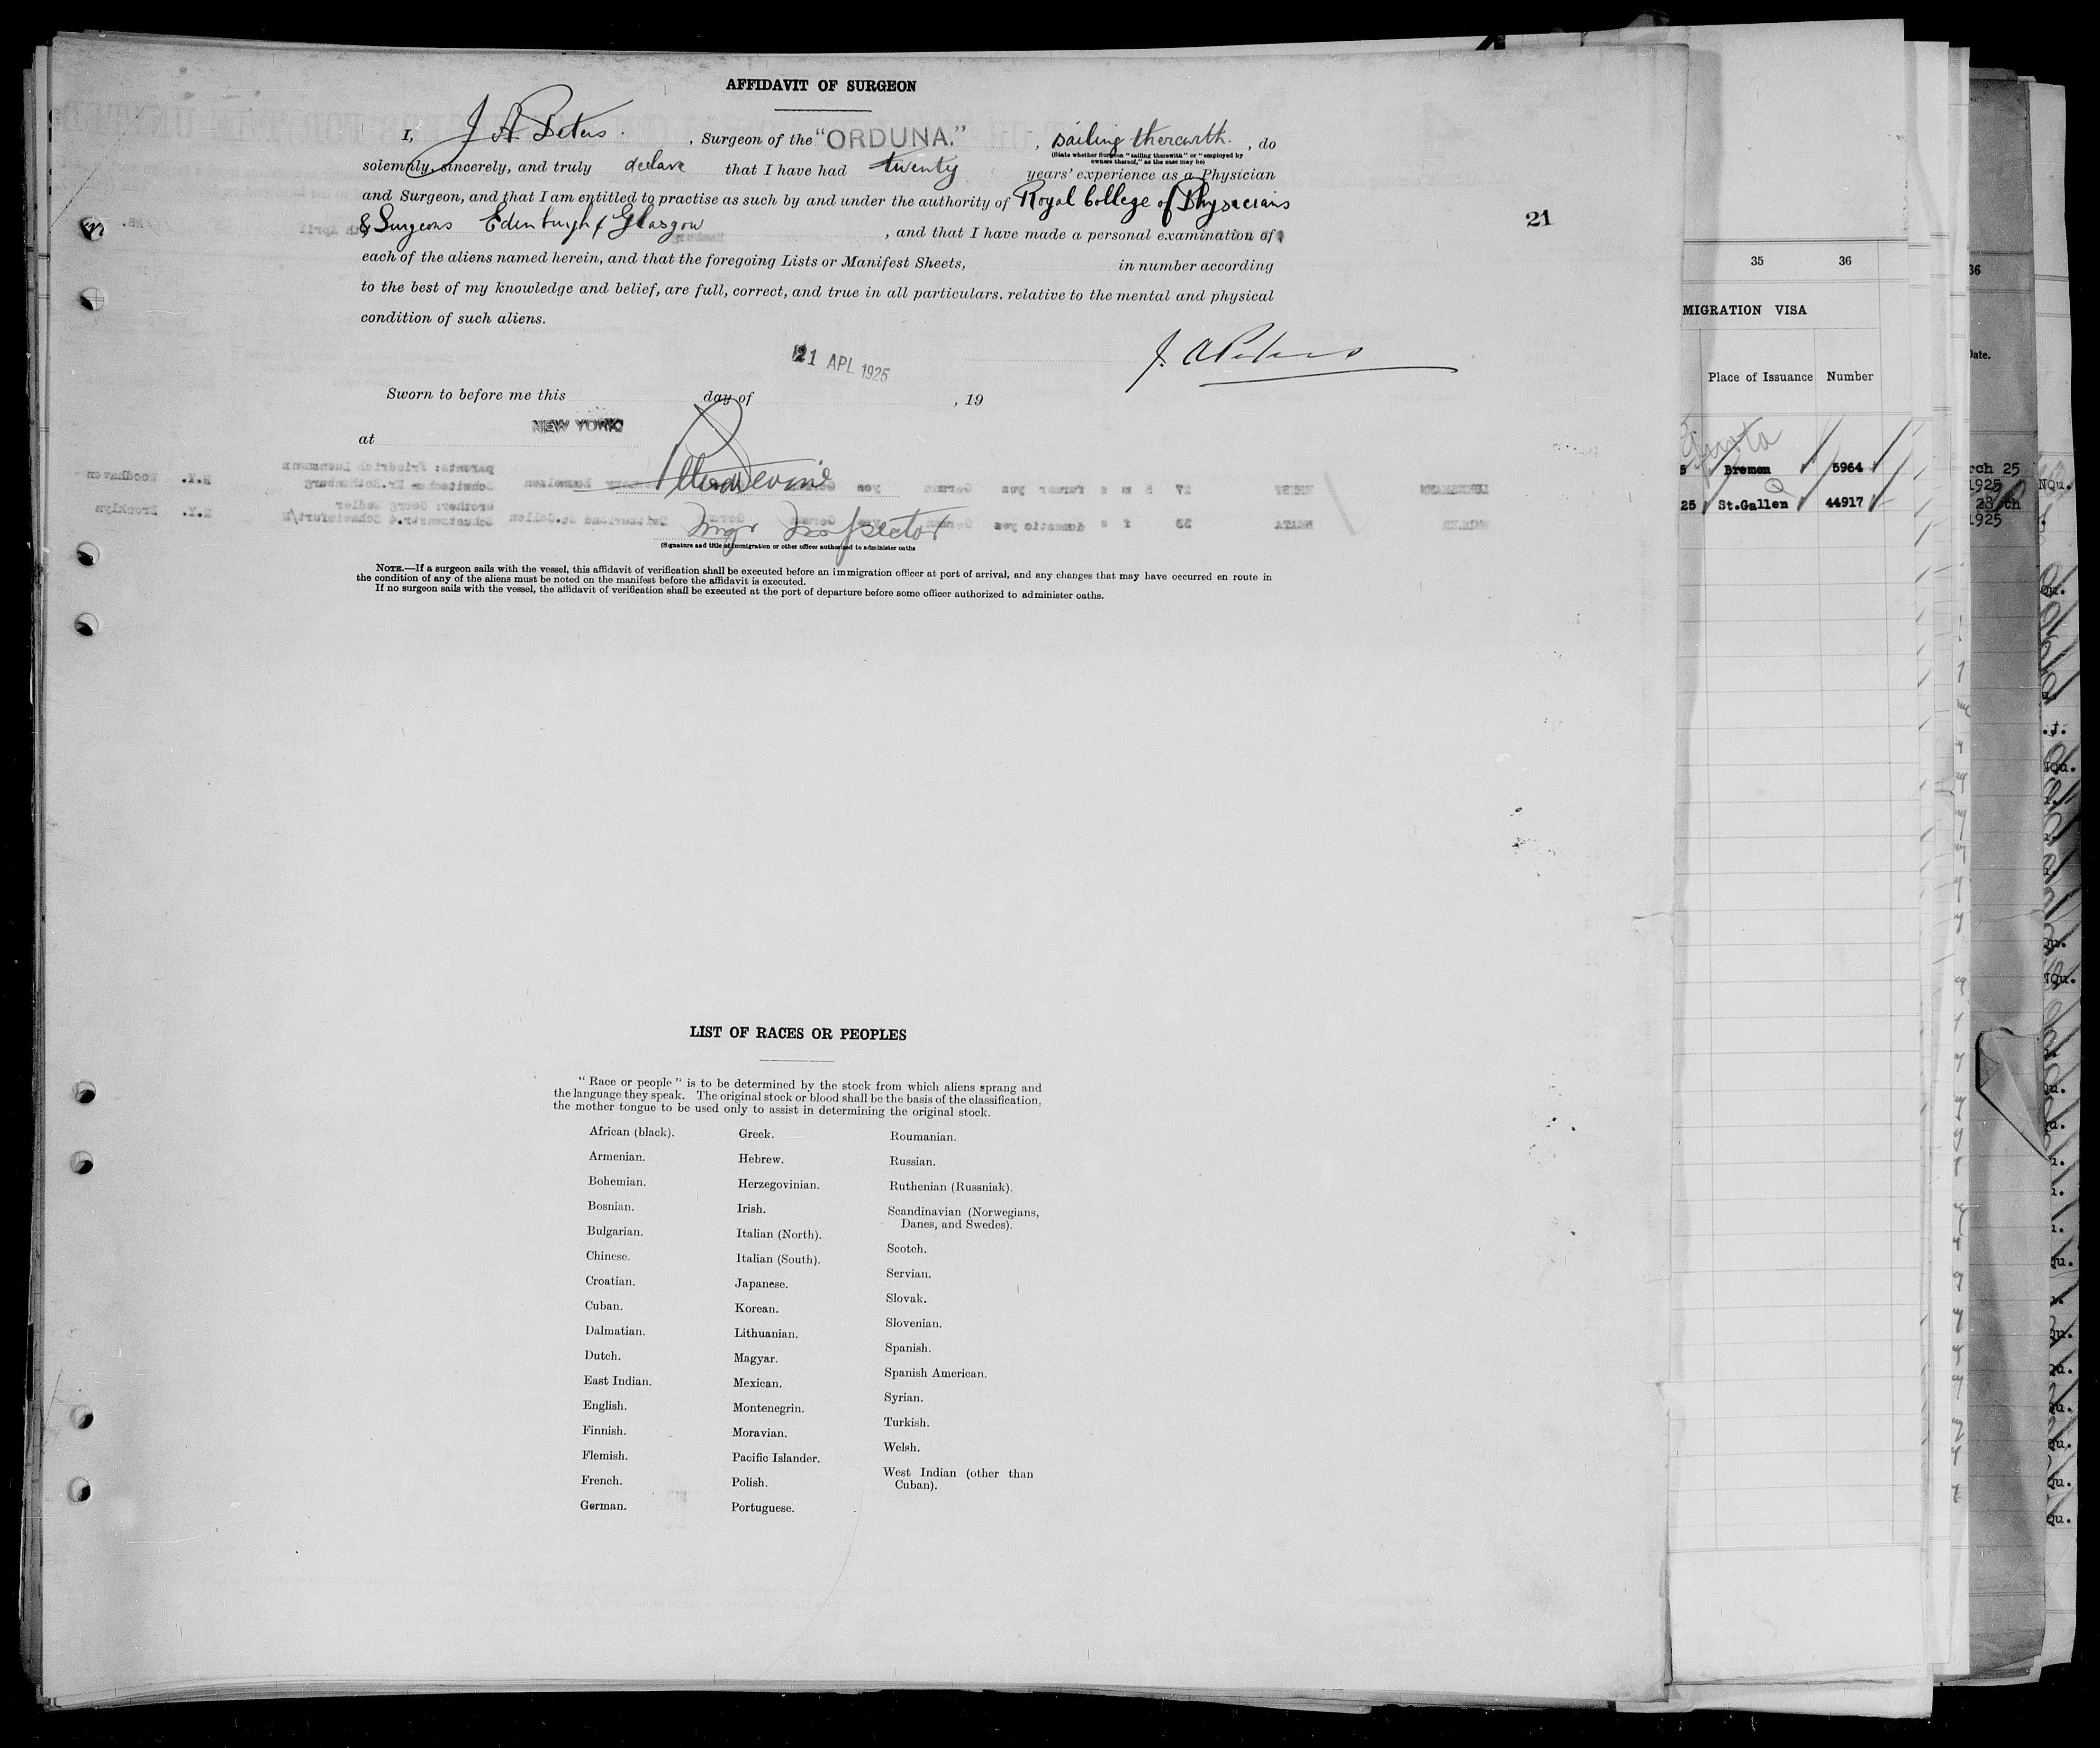 AFFIDAVIT OF SURGEON
I, J A Peters. , Surgeon of the "ORDUNA." , sailing therewith. , do
(State whether Surgeon "sailing therewith" or "employed by
owners thereof," as the case may be)
solemnly, sincerely, and truly declare that I have had twenty years' experience as a Physician
and Surgeon, and that I am entitled to practise as such by and under the authority of Royal College of Physicians
& Surgeons Edinburgh & Glasgow , and that I have made a personal examination of
21
each of the aliens named herein, and that the foregoing Lists or Manifest Sheets, in number according
to the best of my knowledge and belief, are full, correct, and true in all particulars, relative to the mental and physical
condition of such aliens.
J. A Peters
21 APL 1925
Sworn to before me this day of , 19
at NEW YORK
Inspector
(Signature and title of immigration or other officer authorized to administer oaths
NOTE.—If a surgeon sails with the vessel, this affidavit of verification shall be executed before an immigration officer at port of arrival, and any changes that may have occurred en route in
the condition of any of the aliens must be noted on the manifest before the affidavit is executed.
If no surgeon sails with the vessel, the affidavit of verification shall be executed at the port of departure before some officer authorized to administer oaths.
LIST OF RACES OR PEOPLES
"Race or people" is to be determined by the stock from which aliens sprang and
the language they speak. The original stock or blood shall be the basis of the classification,
the mother tongue to be used only to assist in determining the original stock.
African (black).
Armenian.
Bohemian.
Bosnian.
Bulgarian.
Chinese.
Croatian.
Cuban.
Dalmatian.
Dutch.
East Indian.
English.
Finnish.
Flemish.
French.
German.
Greek.
Hebrew.
Herzegovinian.
Irish.
Italian (North).
Italian (South).
Japanese.
Korean.
Lithuanian.
Magyar.
Mexican.
Montenegrin.
Moravian.
Pacific Islander.
Polish.
Portuguese.
Roumanian.
Russian.
Ruthenian (Russniak).
Scandinavian (Norwegians,
Danes, and Swedes).
Scotch.
Servian.
Slovak.
Slovenian.
Spanish.
Spanish American.
Syrian.
Turkish.
Welsh.
West Indian (other than
Cuban).
35 36
MIGRATION VISA
Place of Issuance Number
5 Bremen 5964
25 St.Gallen 44917
36
Date.
rch 25
1925
23 th
1925
NQu.